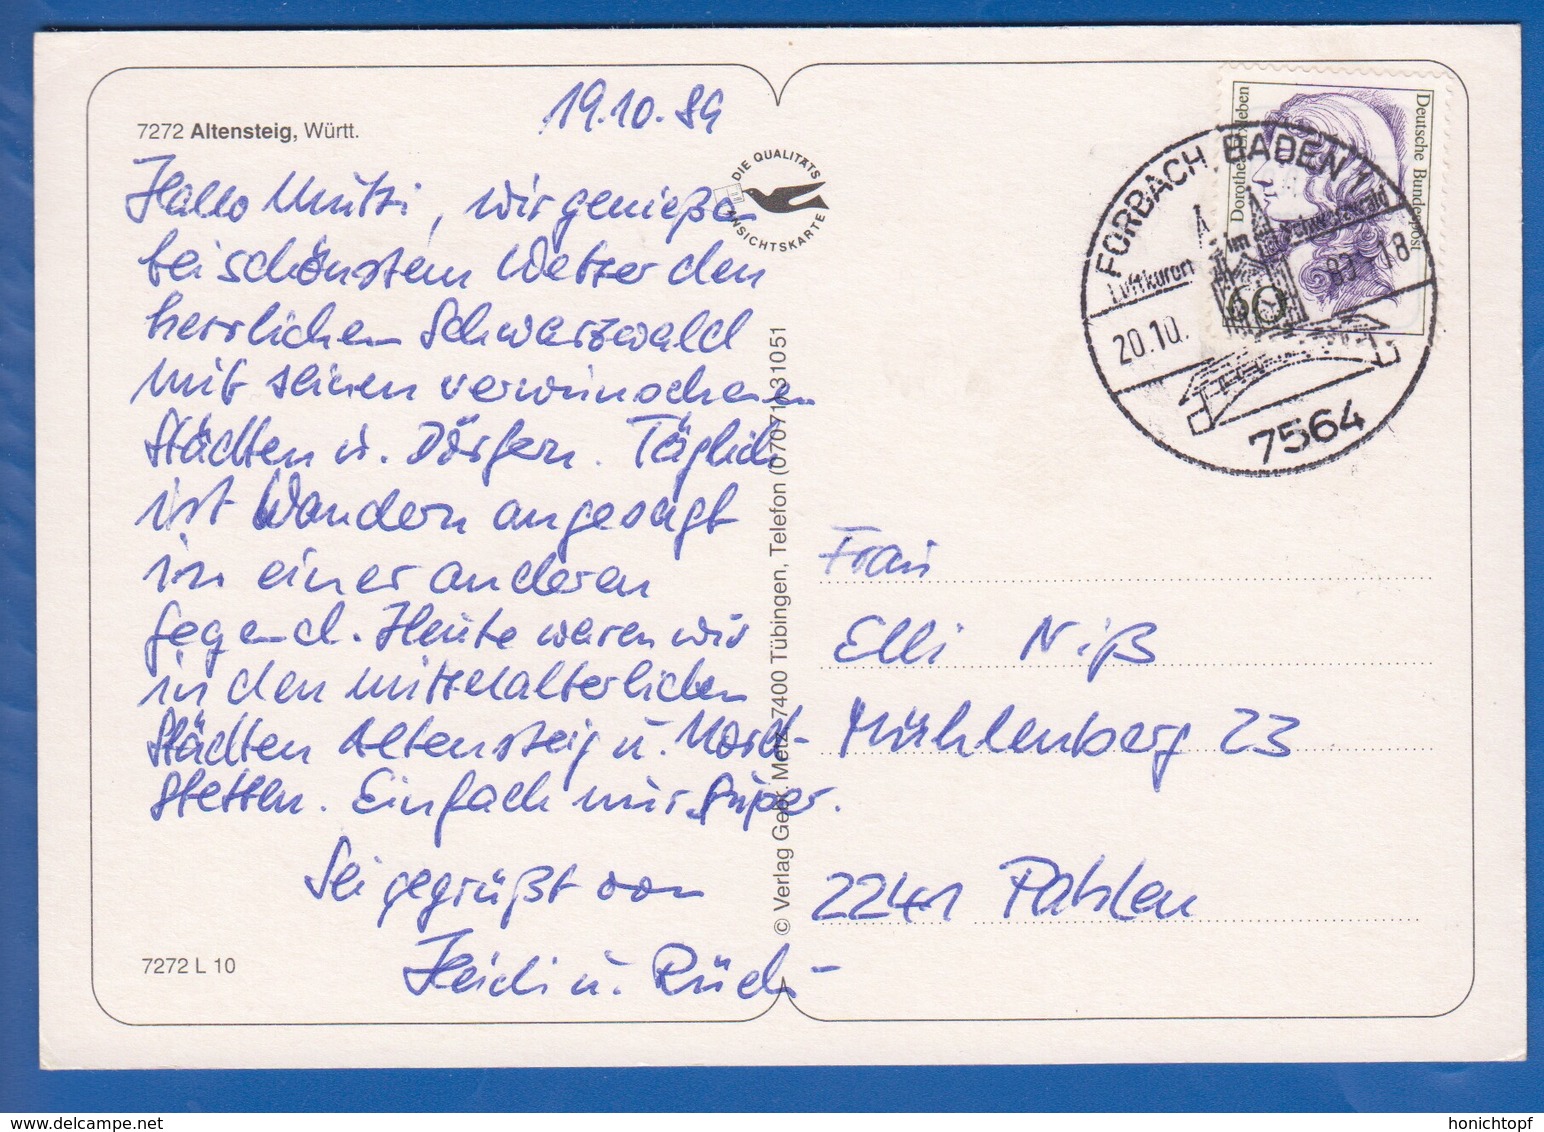 19.10.89
7272 Altensteig, Württ.
Hallo Mutti, wir genießen
bei schönstem Wetter den
herrlichen Schwarzwald
mit seinen verwunschenen
Städten u. Dörfern. Täglich
ist Wandern angesagt
in einer anderen
Gegend. Heute waren wir
in den mittelalterlichen
Städten Altensteig u. Nord-
stetten. Einfach nur super.
Sei gegrüßt von
Heidi u. Rüdi
7272 L 10
DIE QUALITÄTS
ANSICHTSKARTE
© Verlag Gebr. Metz, 7400 Tübingen, Telefon (07071) 31051
Deutsche Bundespost
Dorothea Erxleben
60
FORBACH, BADEN 1
Luftkurort im Schwarzwald
20.10. 89 - 18
7564
Frau
Elli Niß
Mühlenberg 23
2241 Pahlen
delcampe.net
honichtopf